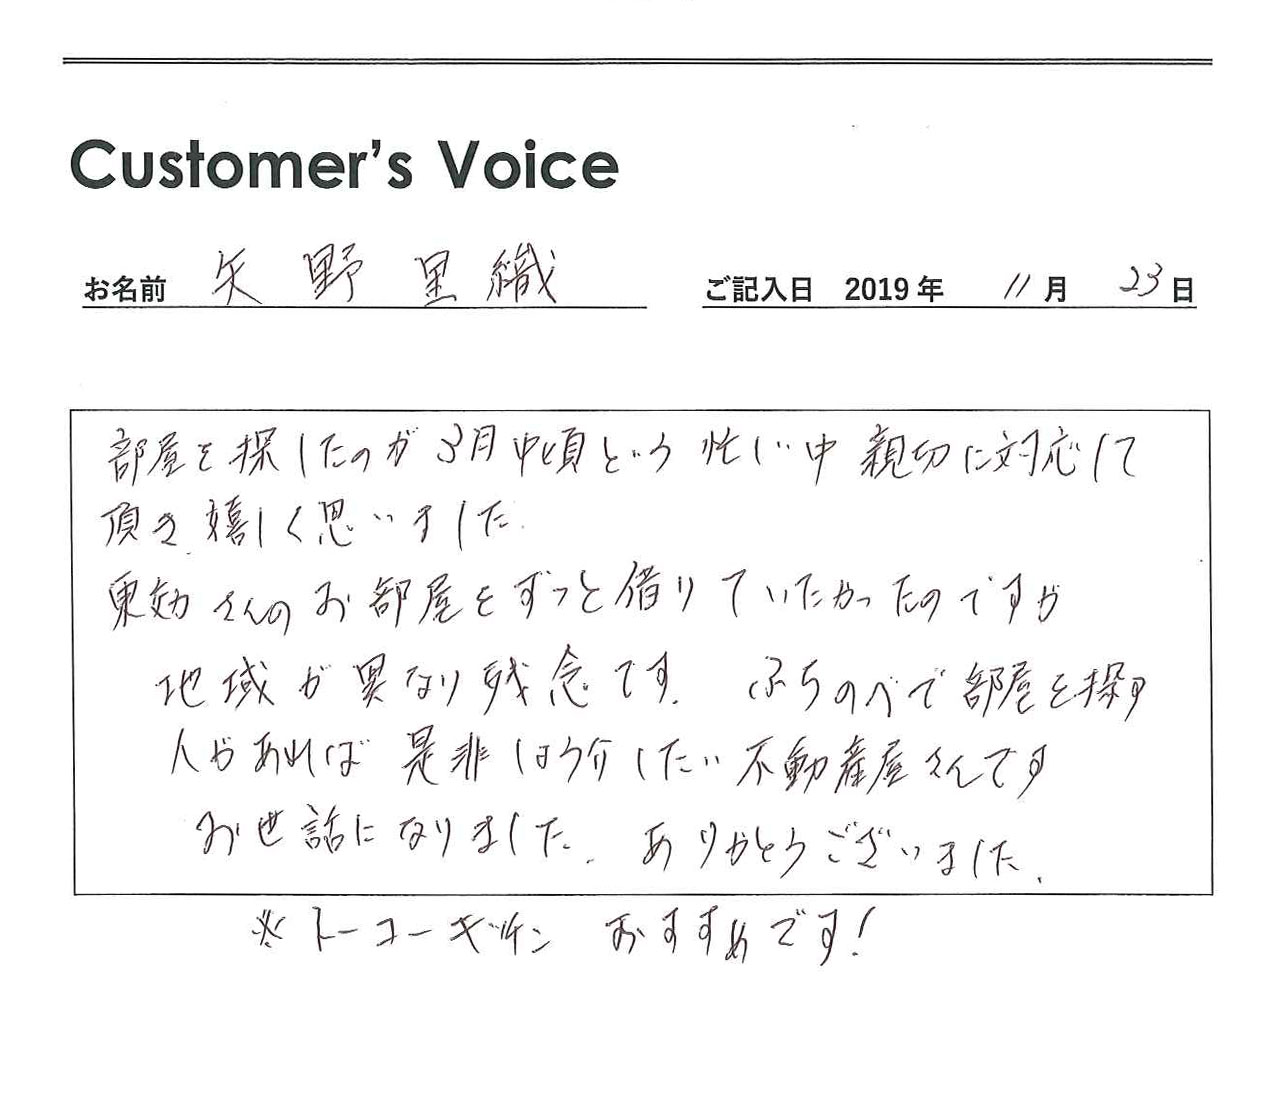 Customer's Voice
お名前 矢野里織 ご記入日 2019年 11月 23日
部屋を探したのが3月中頃という忙しい中親切に対応して
頂き嬉しく思いました。
東効さんのお部屋をずっと借りていたかったのですが
地域が異なり残念です。ふちのべで部屋を探す
人があれば是非しょう介したい不動産屋さんです
お世話になりました。ありがとうございました。
※トーコーキッチン おすすめです!